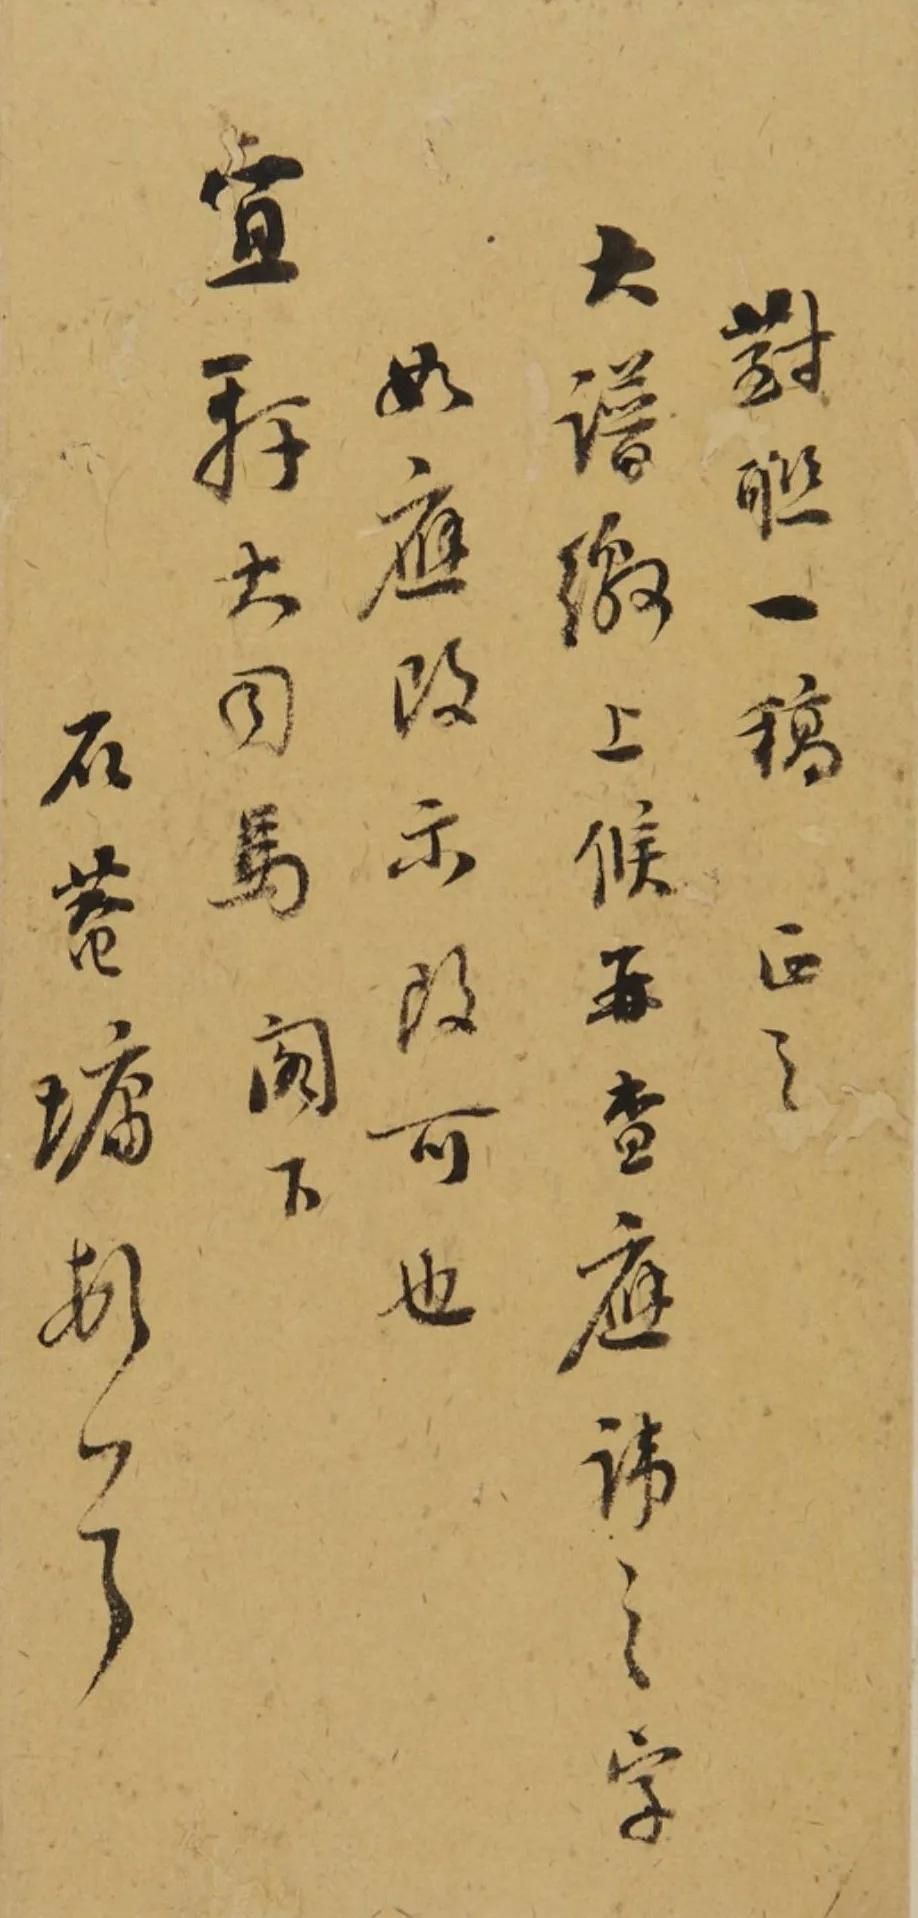 對聯一稿 正之
大譜繳上候再查應諱之字
如應改示改可也
宣軒大司馬 閣下
石菴墉頓首